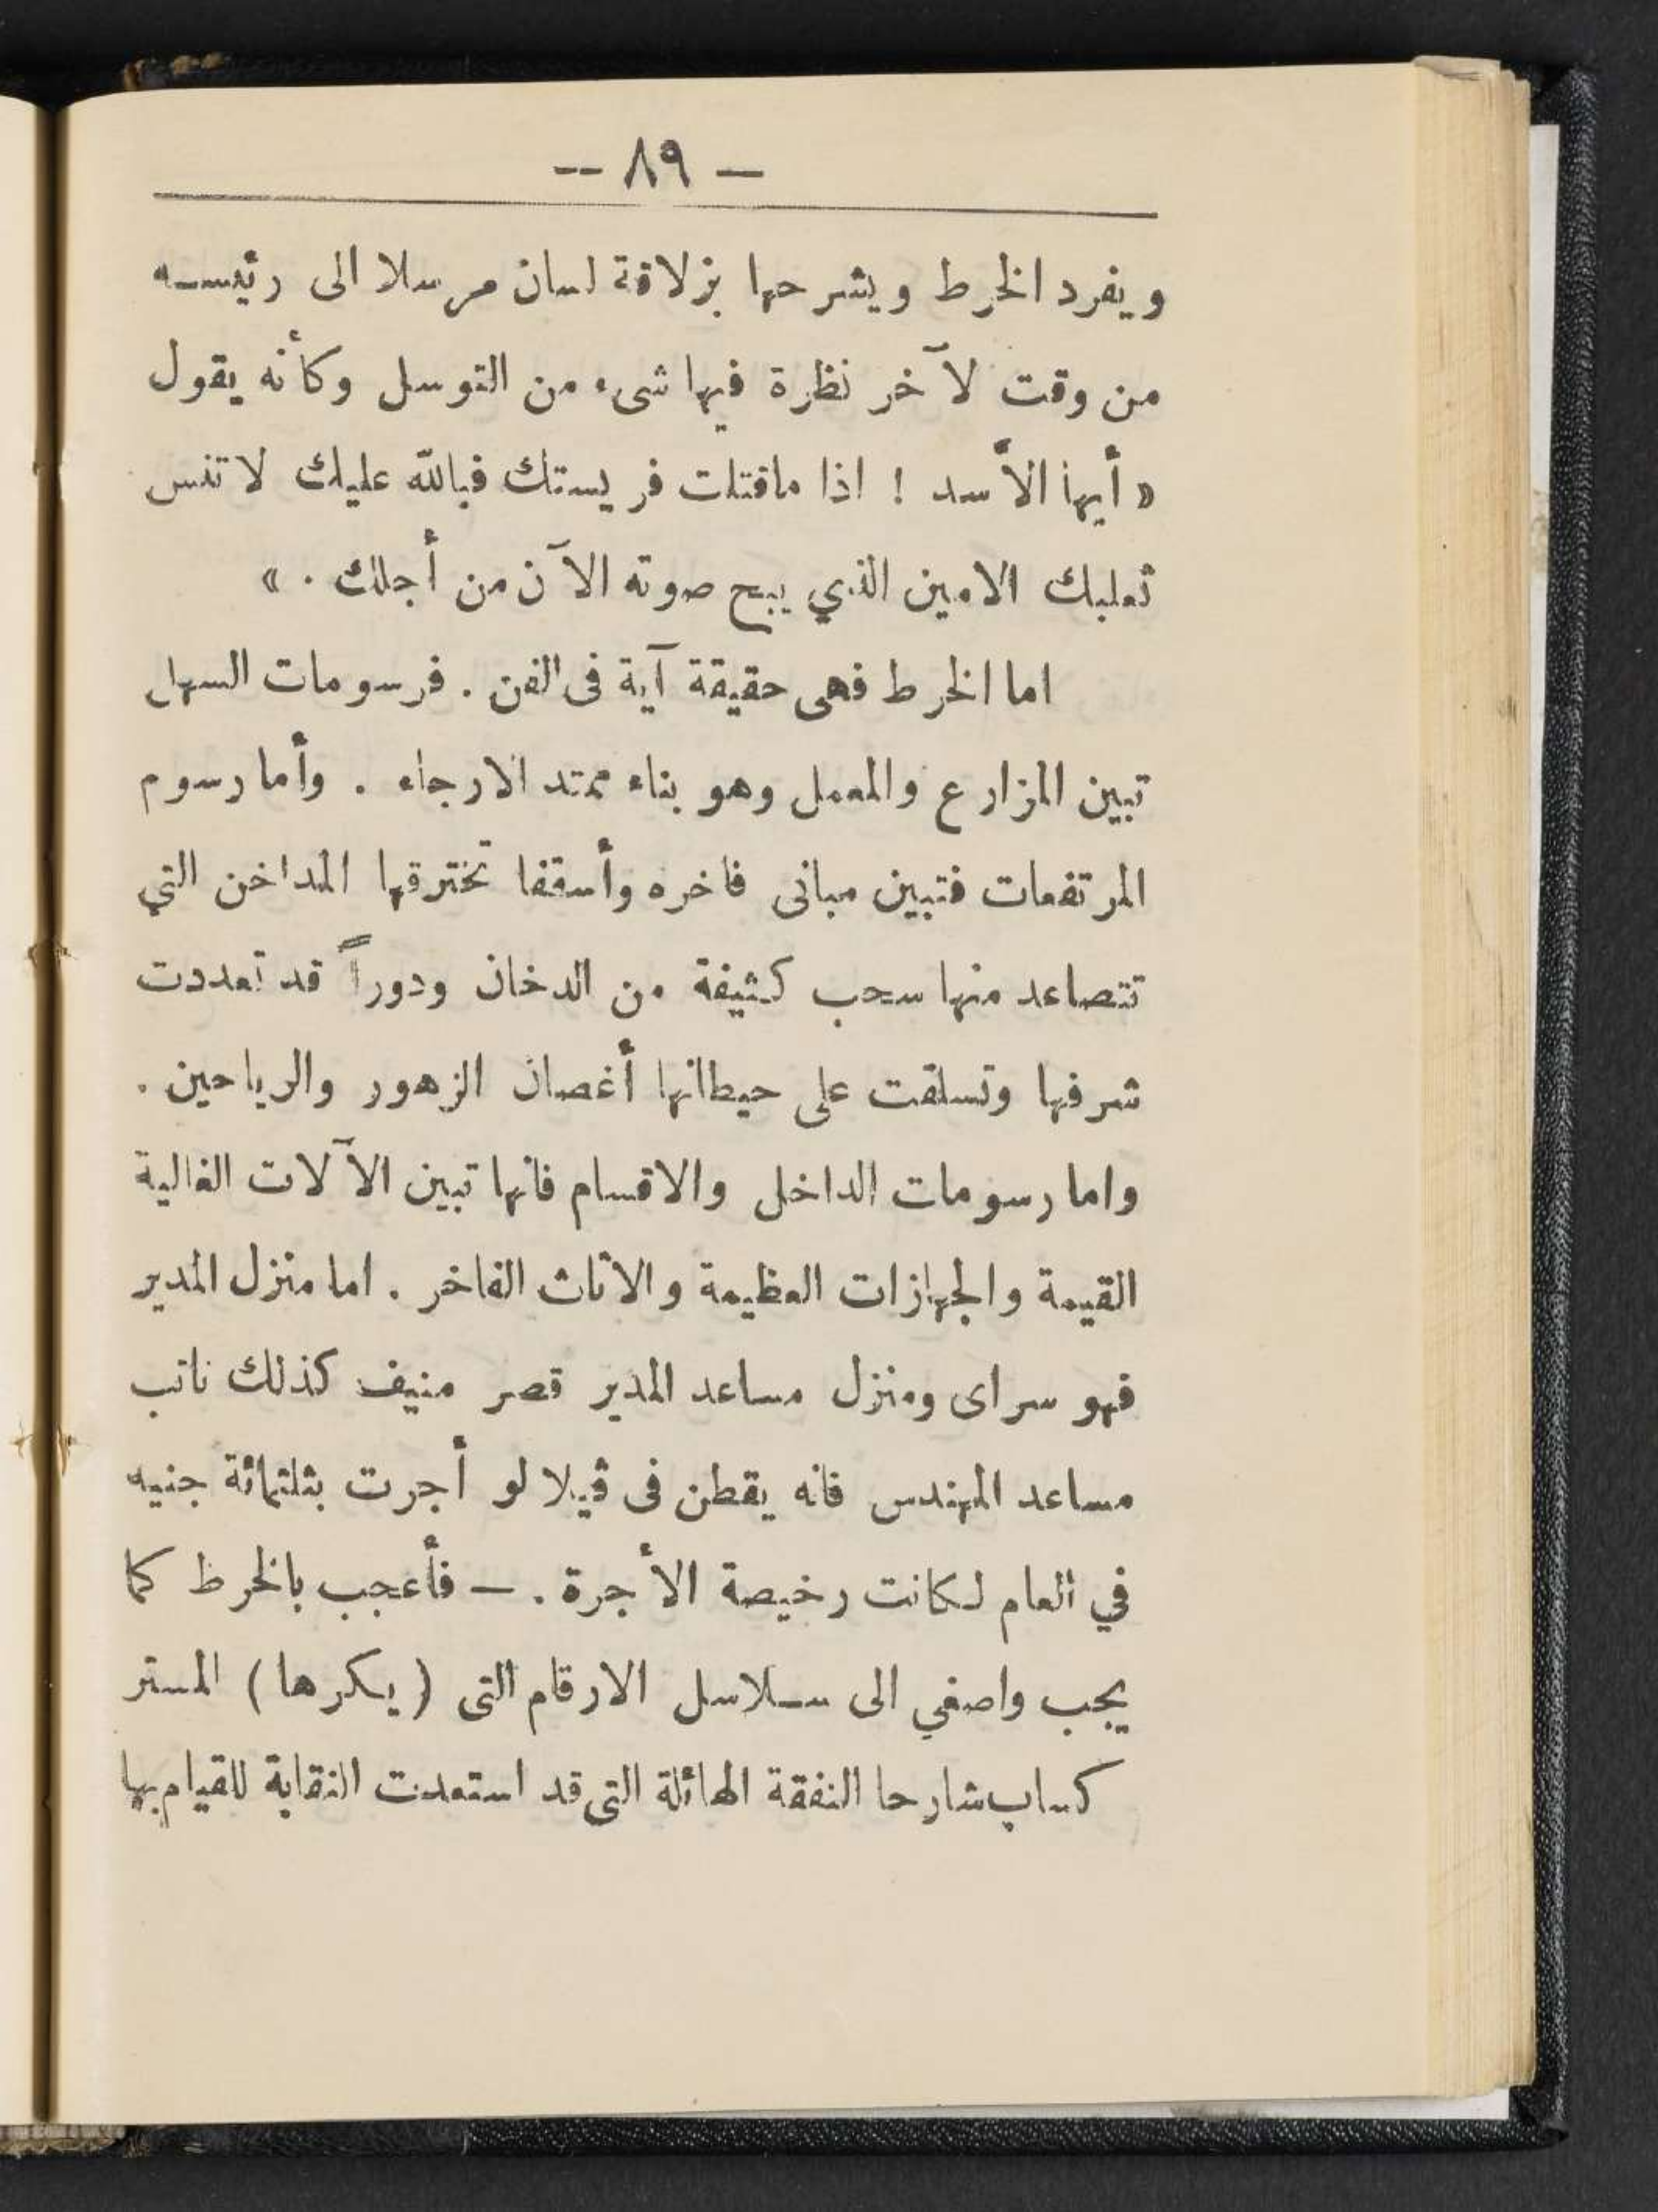 — ٨٩ —
ويفرد الخرط ويشرحها بزلاقة لسان مرسلا الى رئيسه
من وقت لآخر نظرة فيها شىء من التوسل وكأنه يقول
« أيها الأسد ! اذا ماقتلت فريستك فبالله عليك لا تنس
ثعلبك الامين الذي يبح صوته الآن من أجلك . »
اما الخرط فهى حقيقة آية فى الفن . فرسومات السهل
تبين المزارع والمعمل وهو بناء ممتد الارجاء . وأما رسوم
المرتفعات فتبين مبانى فاخره وأسقفا تخترقها المداخن التي
تتصاعد منها سحب كثيفة من الدخان ودوراً قد تعددت
شرفها وتسلقت على حيطانها أغصان الزهور والرياحين .
واما رسومات الداخل والاقسام فانها تبين الآلات الغالية
القيمة والجهازات العظيمة والاثاث الفاخر . اما منزل المدير
فهو سراى ومنزل مساعد المدير قصر منيف كذلك نائب
مساعد المهندس فانه يقطن فى ڤيلا لو أجرت بثلثمائة جنيه
في العام لكانت رخيصة الأجرة . — فأعجب بالخرط كما
يجب واصغي الى سلاسل الارقام التى ( يكرها ) المستر
كساب شارحا النفقة الهائلة التى قد استعدت النقابة للقيام بها